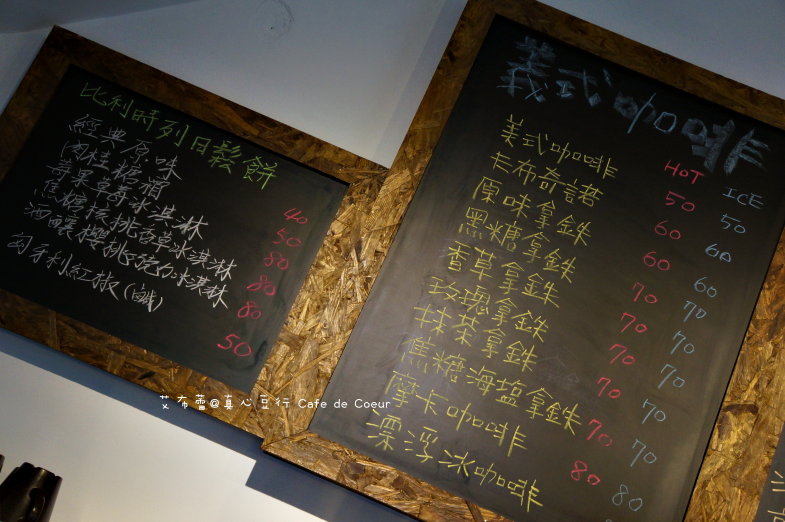 比利時列日鬆餅
經典原味 40
肉桂糖霜 50
莓果草莓冰淇淋 80
焦糖核桃香草冰淇淋 80
酒釀櫻桃巧克力冰淇淋 80
匈牙利紅椒(鹹) 50
義式咖啡
HOT ICE
美式咖啡 50 50
卡布奇諾 60 60
原味拿鉄 60 60
黑糖拿鉄 70 70
香草拿鉄 70 70
玫瑰拿鉄 70 70
抹茶拿鉄 70 70
焦糖海塩拿鉄 70 70
摩卡咖啡 80 80
漂浮冰咖啡 80
艾布蕾@真心豆行 Cafe de Coeur